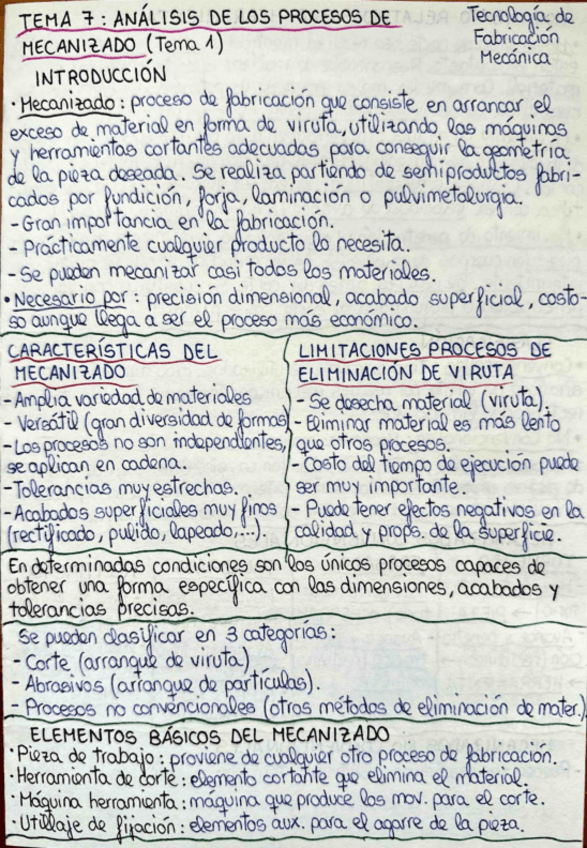 TEMA 7: ANÁLISIS DE LOS PROCESOS DE
MECANIZADO (Tema 1)
Tecnología de
Fabricación
Mecánica
INTRODUCCIÓN
· Mecanizado: proceso de fabricación que consiste en arrancar el
exceso de material en forma de viruta, utilizando las máquinas
y herramientas cortantes adecuadas para conseguir la geometría
de la pieza deseada. Se realiza partiendo de semiproductos fabri-
cados por fundición, forja, laminación o pulvimetalurgia.
- Gran importancia en la fabricación.
- Prácticamente cualquier producto lo necesita.
- Se pueden mecanizar casi todos los materiales.
• Necesario por: precisión dimensional, acabado superficial, costo-
so aunque llega a ser el proceso más económico.
CARACTERÍSTICAS DEL
MECANIZADO
- Amplia variedad de materiales
- Versátil (gran diversidad de formas)
- Los procesos no son independientes,
se aplican en cadena.
- Tolerancias muy estrechas.
- Acabados superficiales muy finos
(rectificado, pulido, lapeado,...).
LIMITACIONES PROCESOS DE
ELIMINACIÓN DE VIRUTA
- Se desecha material (viruta).
- Eliminar material es más lento
que otros procesos.
- Costo del tiempo de ejecución puede
ser muy importante.
- Puede tener efectos negativos en la
calidad y props. de la superficie.
En determinadas condiciones son los únicos procesos capaces de
obtener una forma específica con las dimensiones, acabados y
tolerancias precisas.
Se pueden clasificar en 3 categorías:
- Corte (arranque de viruta)
- Abrasivos (arranque de partículas).
- Procesos no convencionales (otros métodos de eliminación de mater.)
ELEMENTOS BÁSICOS DEL MECANIZADO
· Pieza de trabajo: proviene de cualquier otro proceso de fabricación.
· Herramienta de corte: elemento cortante que elimina el material.
· Máquina herramienta: máquina que produce los mov. para el corte.
· Utillaje de fijación: elementos aux. para el agarre de la pieza.